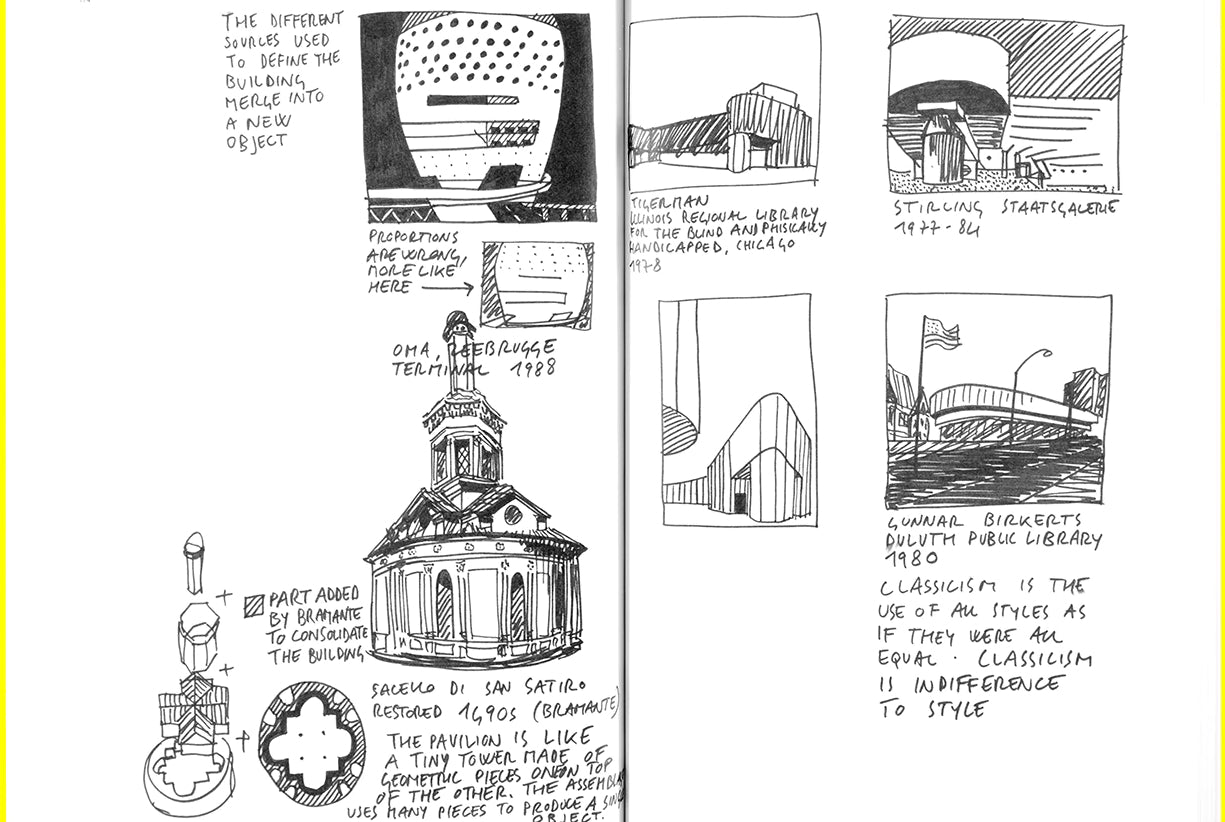 THE DIFFERENT
SOURCES USED
TO DEFINE THE
BUILDING
MERGE INTO
A NEW
OBJECT
PROPORTIONS
ARE WRONG,
MORE LIKE
HERE
OMA, ZEEBRUGGE
TERMINAL 1988
PART ADDED
BY BRAMANTE
TO CONSOLIDATE
THE BUILDING
SACELLO DI SAN SATIRO
RESTORED 1490S (BRAMANTE)
THE PAVILION IS LIKE
A TINY TOWER MADE OF
GEOMETRIC PIECES ONE ON TOP
OF THE OTHER. THE ASSEMBLA
USES MANY PIECES TO PRODUCE A SING
OBJECT.
TIGERMAN
ILLINOIS REGIONAL LIBRARY
FOR THE BLIND AND PHISICALLY
HANDICAPPED, CHICAGO
1978
STIRLING STAATSGALERIE
1977-84
GUNNAR BIRKERTS
DULUTH PUBLIC LIBRARY
1980
CLASSICISM IS THE
USE OF ALL STYLES AS
IF THEY WERE ALL
EQUAL. CLASSICISM
IS INDIFFERENCE
TO STYLE